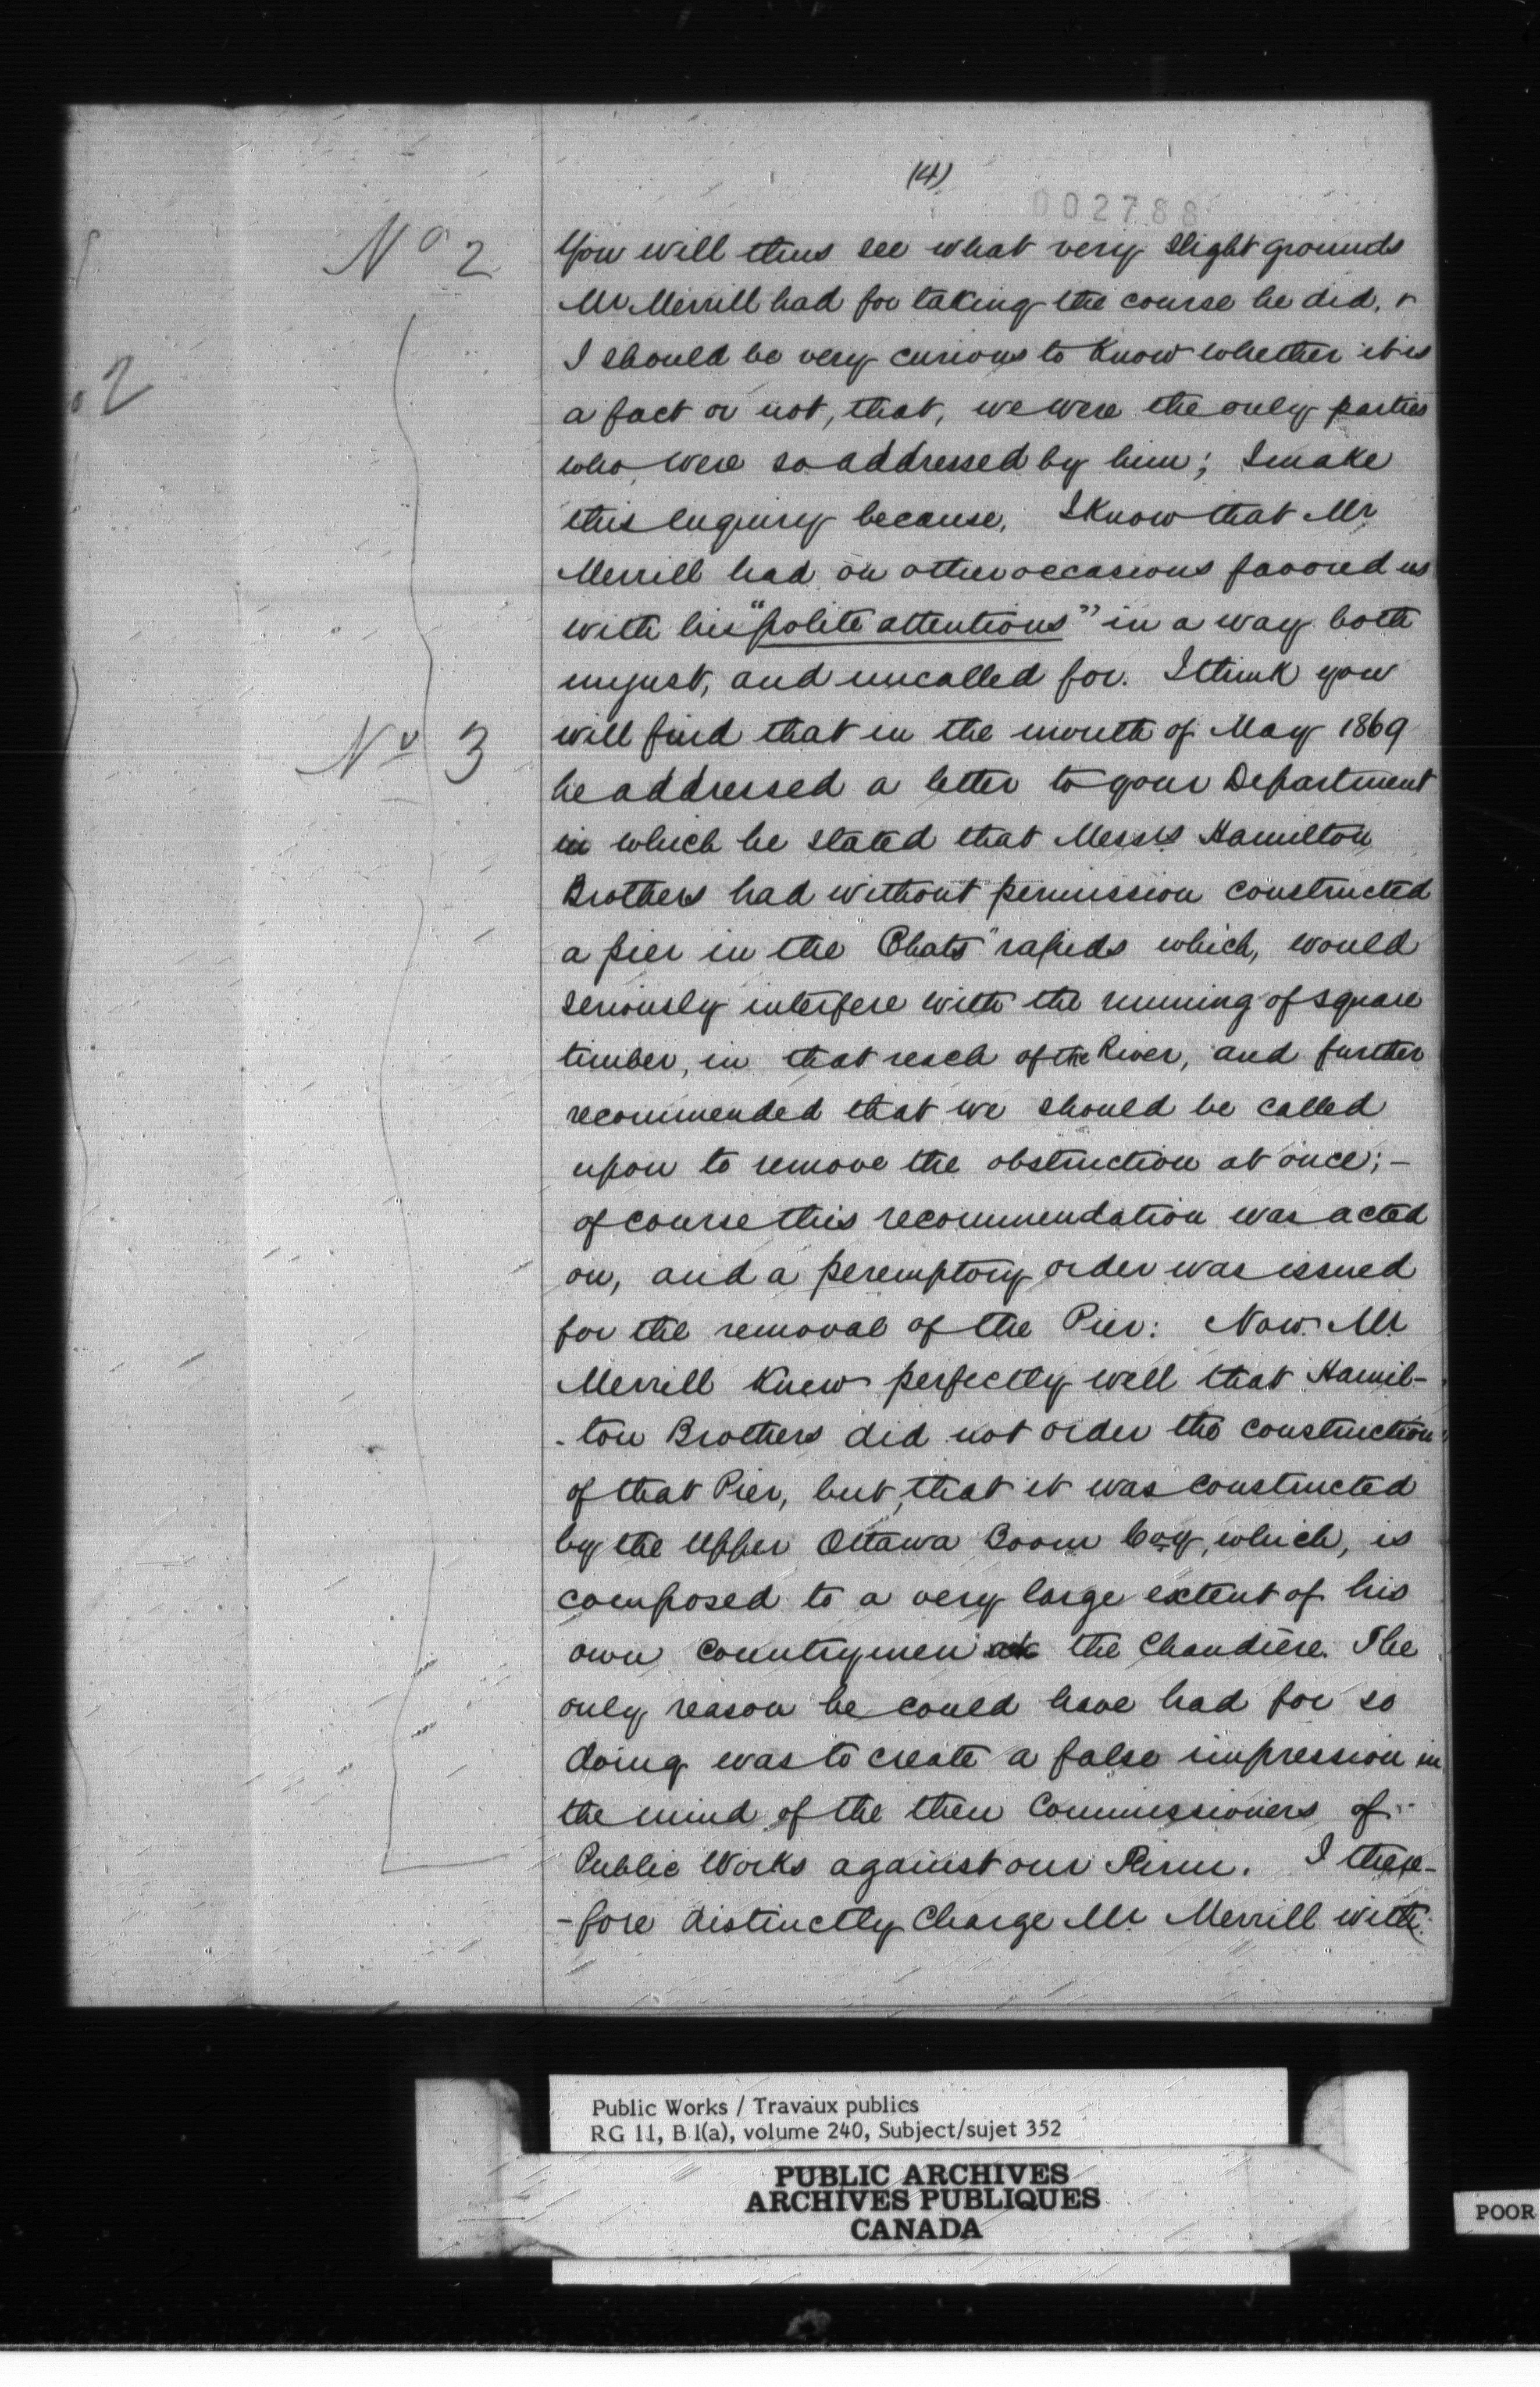 (4)
002788
No 2
You will thus see what very slight grounds
Mr Merrill had for taking the course he did, &
I should be very curious to Know whether it is
a fact or not, that, we were the only parties
who, were so addressed by him; I make
this enquiry because, I Know that Mr
Merrill had on other occasions favored us
with his "polite attentions" in a way both
unjust, and uncalled for. I think you
No 3
will find that in the month of May 1869
he addressed a letter to your Department
in which he stated that Messrs Hamilton
Brothers had without permission constructed
a pier in the Chats" rapids which, would
seriously interfere with the running of square
timber, in that reach of the River, and further
recommended that we should be called
upon to remove the obstruction at once; -
of course this recommendation was acted
on, and a peremptory order was issued
for the removal of the Pier: Now Mr
Merrill Knew perfectly well that Hamil-
-ton Brothers did not order the construction
of that Pier, but, that it was constructed
by the Upper Ottawa Boom Coy, which, is
composed to a very large extent of his
own countrymen at the Chaudière. The
only reason he could have had for so
doing was to create a false impression in
the mind of the then Commissioners of
Public Works against our Firm. I there-
-fore distinctly Charge Mr Merrill with
2
Public Works / Travaux publics
RG 11, B 1(a), volume 240, Subject/sujet 352
PUBLIC ARCHIVES
ARCHIVES PUBLIQUES
CANADA
POOR